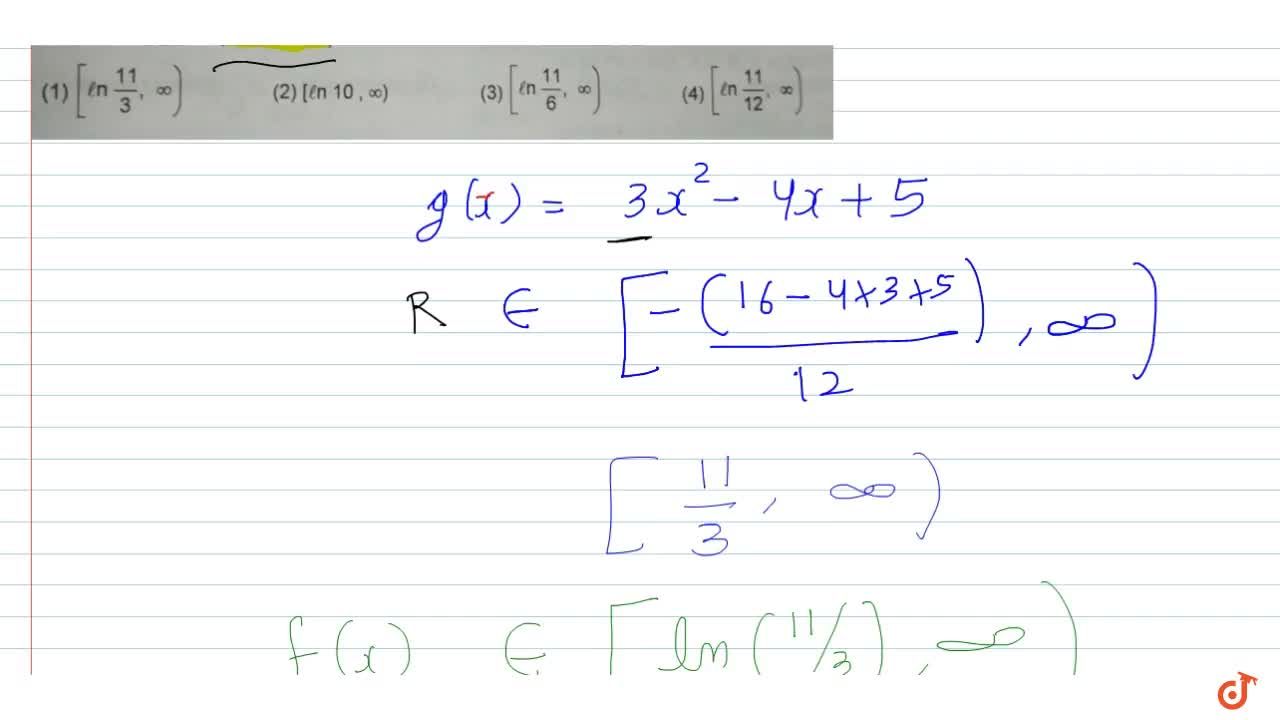 (1) [ℓn 11/3, ∞) (2) [ℓn 10 , ∞) (3) [ℓn 11/6, ∞) (4) [ℓn 11/12, ∞)
g(x) = 3x² - 4x + 5
R ∈ [-(16 - 4×3×5)/12, ∞)
[11/3, ∞)
f(x) ∈ [ln(11/3), ∞)